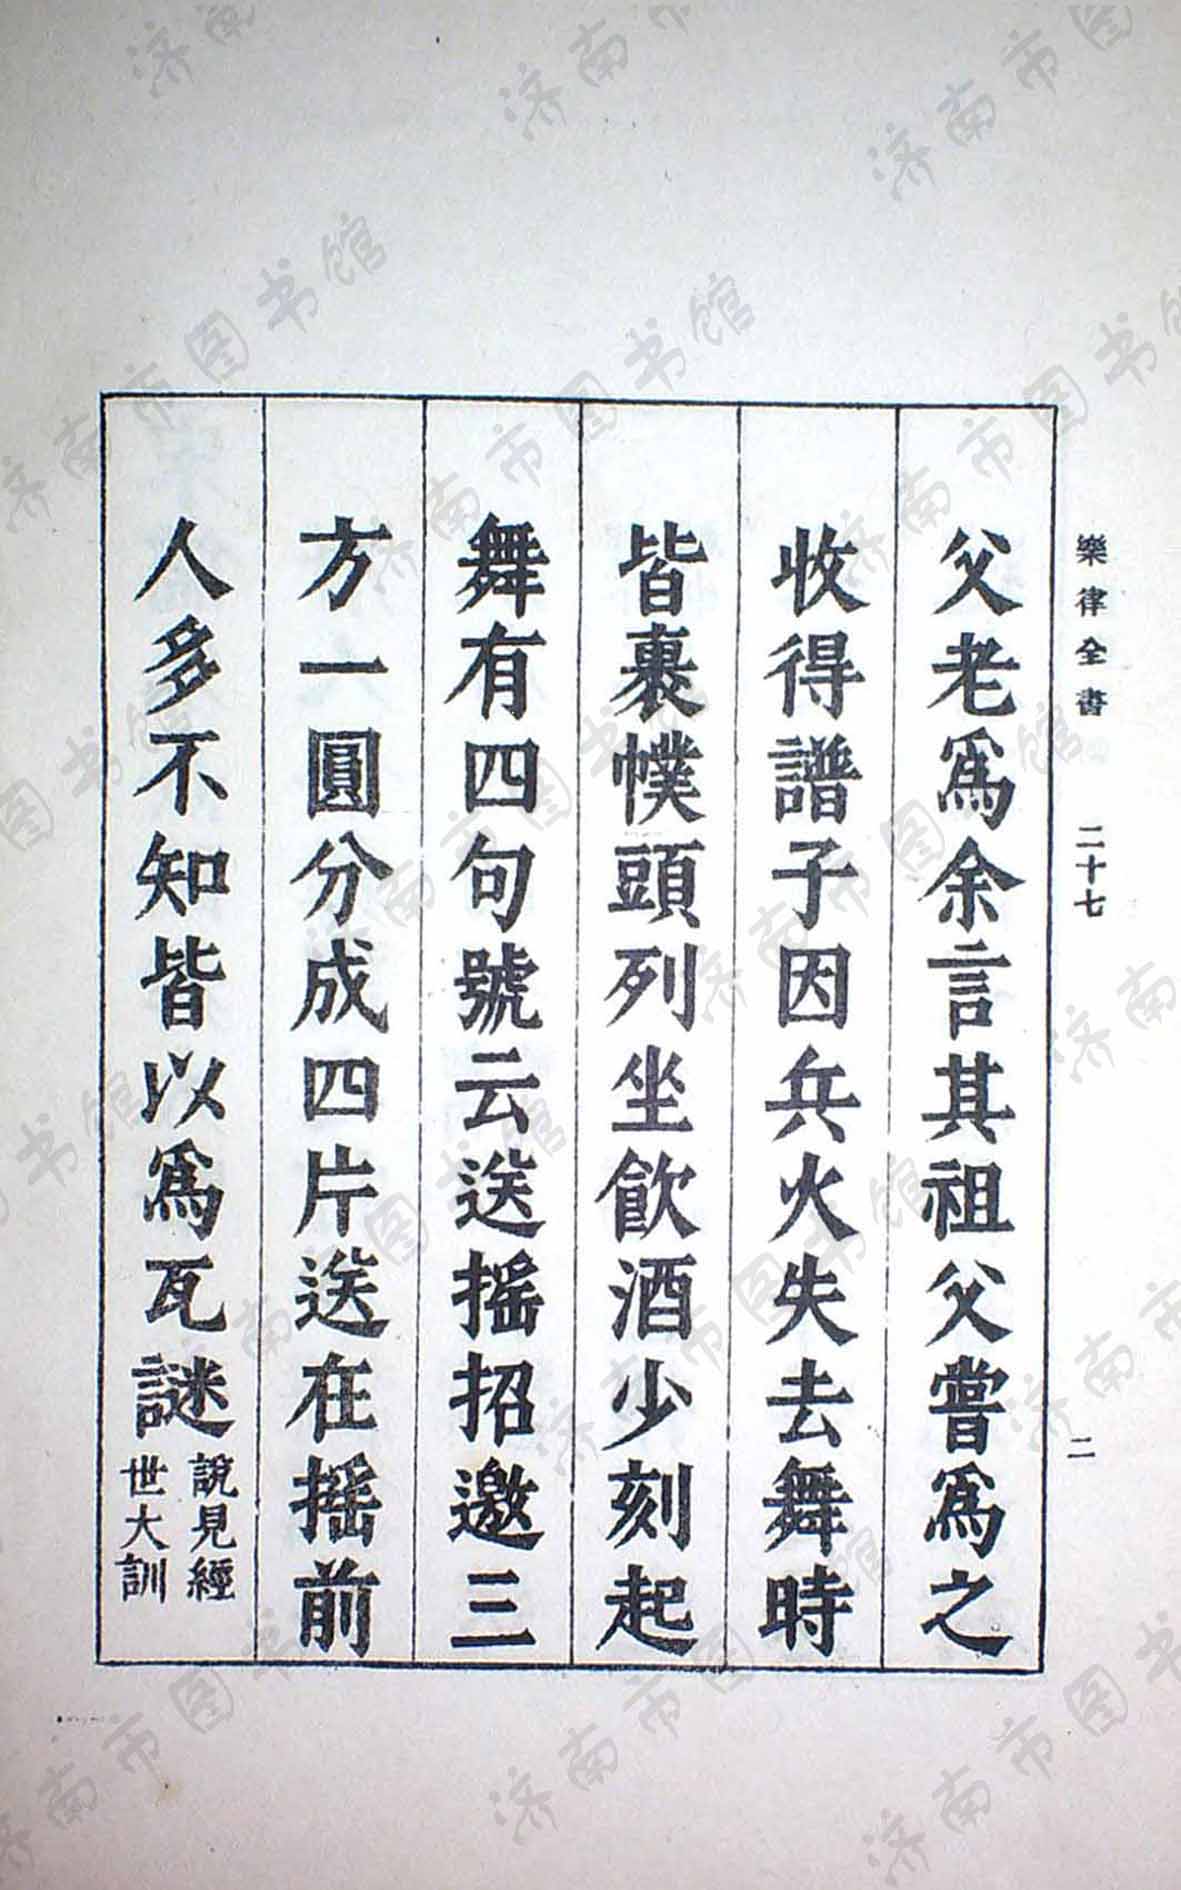 樂律全書 二十七 二
父老爲余言其祖父嘗爲之
收得譜子因兵火失去舞時
皆裹幞頭列坐飲酒少刻起
舞有四句號云送搖招邀三
方一圓分成四片送在搖前
人多不知皆以爲瓦謎
說見經
世大訓
济南市图书馆